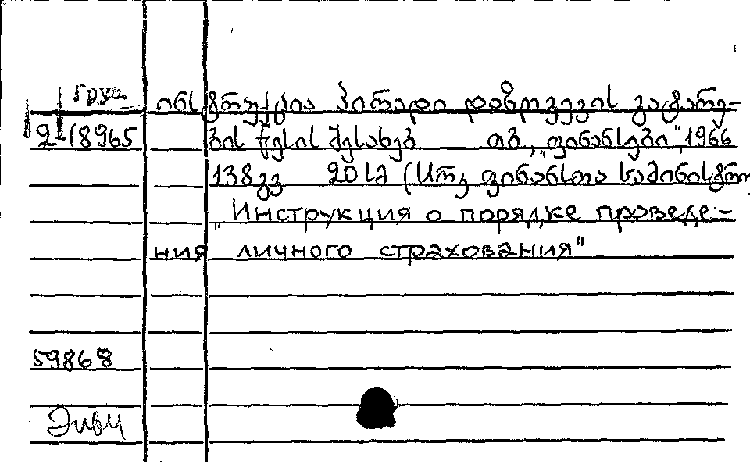 Груз
ინსტრუქცია პირადი დაზღვევის გატარე-
2-18965 ბის წესის შესახებ თბ, „ფინანსები", 1966
138გვ 20სმ (სსრკ ფინანსთა სამინისტრო
„Инструкция о порядке проведе-
ния личного страхования"
59868